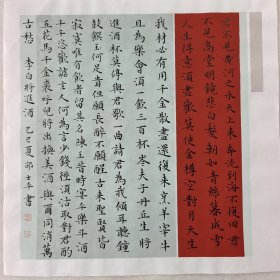 君不見黃河之水天上來奔流到海不復回君
不見高堂明鏡悲白髮朝如青絲暮成雪
人生得意須盡歡莫使金樽空對月天生
我材必有用千金散盡還復來烹羊宰牛
且為樂會須一飲三百杯岑夫子丹丘生將
進酒杯莫停與君歌一曲請君為我傾耳聽鐘
鼓饌玉何足貴但願長醉不願醒古來聖賢皆
寂寞唯有飲者留其名陳王昔時宴平樂斗酒
十千恣歡謔主人何為言少錢徑須沽取對君酌
五花馬千金裘呼兒將出換美酒與爾同消萬
古愁 李白將進酒 乙巳夏 書